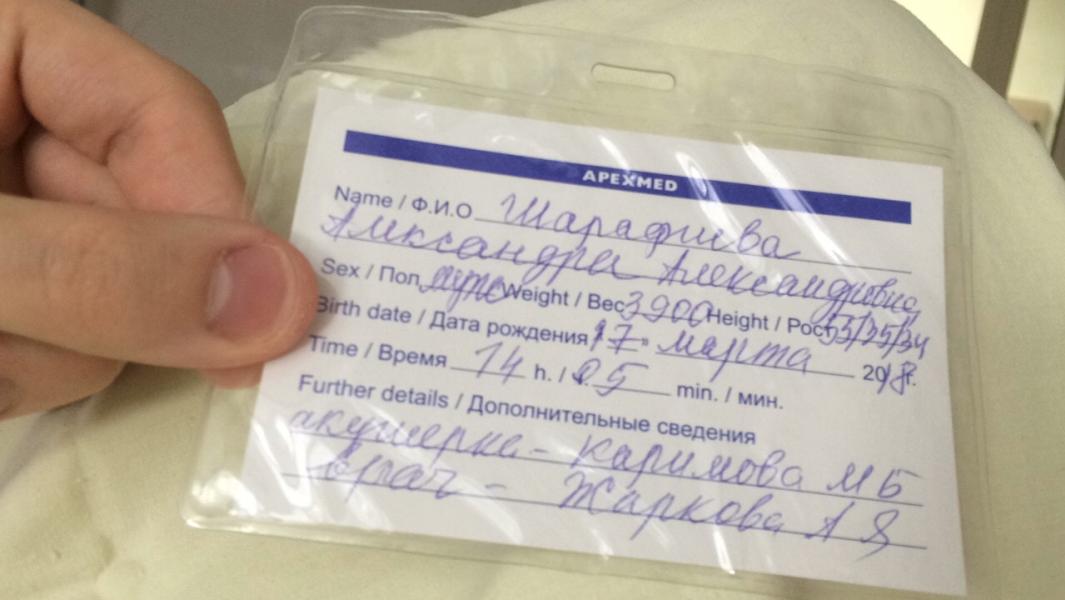 APEXMED
Name / Ф.И.О Шарафиева
Александра Александровна
Sex / Пол муж Weight / Вес 3900 Height / Рост 53/35/34
Birth date / Дата рождения 17 " марта 2018 г.
Time / Время 14 h. / 05 min. / мин.
Further details / Дополнительные сведения
акушерка - Каримова М Б
Врач - Жаркова А Я